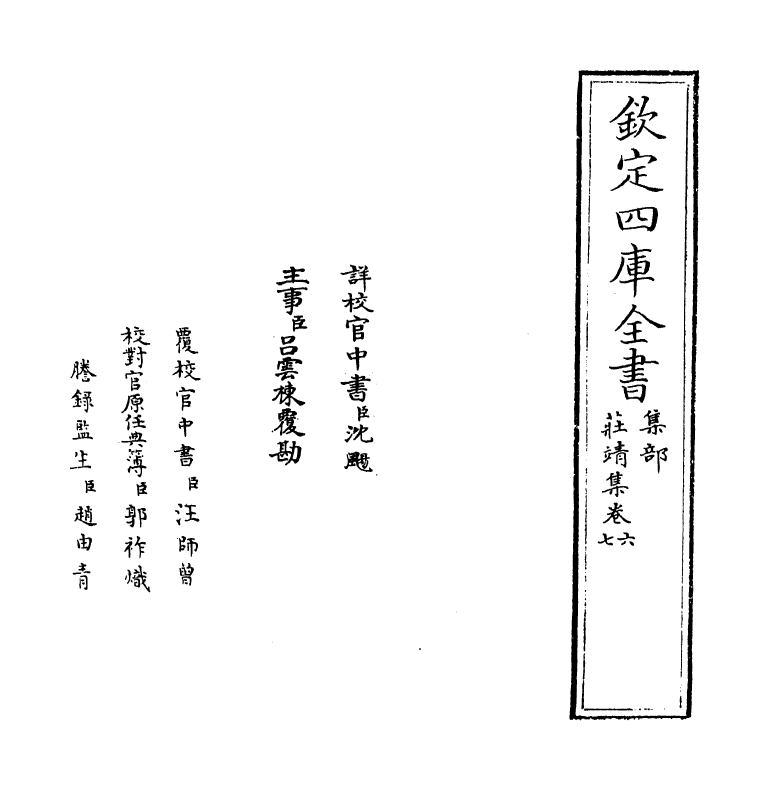 欽定四庫全書
集部
莊靖集卷六
七
詳校官中書臣沈颺
主事臣呂雲棟覆勘
覆校官中書臣汪師曾
校對官原任典簿臣郭祚熾
謄錄監生臣趙由青